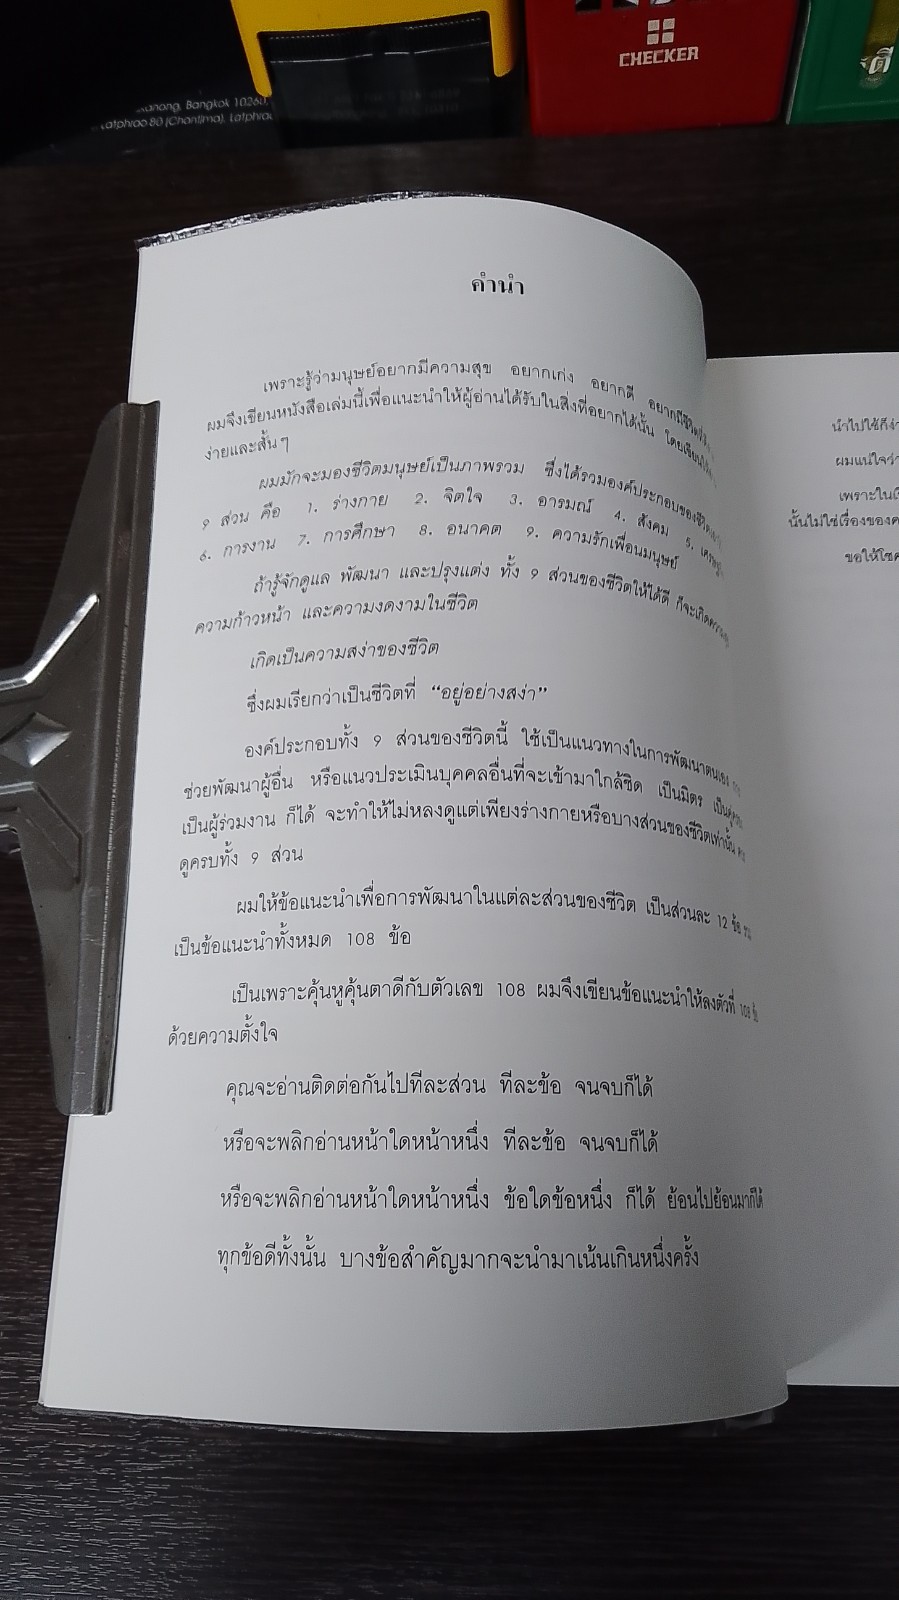 CHECKER
Bangkok 10260,
Latphrao 80 (Chantima), Latphrao
คำนำ
เพราะรู้ว่ามนุษย์อยากมีความสุข อยากเก่ง อยากดี
ผมจึงเขียนหนังสือเล่มนี้เพื่อแนะนำให้ผู้อ่านได้รับในสิ่งที่อยากได้นั้น
ง่ายและสั้นๆ
ผมมักจะมองชีวิตมนุษย์เป็นภาพรวม ซึ่งได้รวมองค์ประกอบของชีวิต
9 ส่วน คือ 1. ร่างกาย 2. จิตใจ 3. อารมณ์ 4. สังคม 5.
6. การงาน 7. การศึกษา 8. อนาคต 9. ความรักเพื่อนมนุษย์
ถ้ารู้จักดูแล พัฒนา และปรุงแต่ง ทั้ง 9 ส่วนของชีวิตให้ได้ดี ก็จะเกิด
ความก้าวหน้า และความงดงามในชีวิต
เกิดเป็นความสง่าของชีวิต
ซึ่งผมเรียกว่าเป็นชีวิตที่ “อยู่อย่างสง่า”
องค์ประกอบทั้ง 9 ส่วนของชีวิตนี้ ใช้เป็นแนวทางในการพัฒนาตนเอง
ช่วยพัฒนาผู้อื่น หรือแนวประเมินบุคคลอื่นที่จะเข้ามาใกล้ชิด เป็นมิตร
เป็นผู้ร่วมงาน ก็ได้ จะทำให้ไม่หลงดูแต่เพียงร่างกายหรือบางส่วนของชีวิตเท่านั้น
ดูครบทั้ง 9 ส่วน
ผมให้ข้อแนะนำเพื่อการพัฒนาในแต่ละส่วนของชีวิต เป็นส่วนละ 12 ข้อ
เป็นข้อแนะนำทั้งหมด 108 ข้อ
เป็นเพราะคุ้นหูคุ้นตาดีกับตัวเลข 108 ผมจึงเขียนข้อแนะนำให้ลงตัวที่ 108 ข้อ
ด้วยความตั้งใจ
คุณจะอ่านติดต่อกันไปทีละส่วน ทีละข้อ จนจบก็ได้
หรือจะพลิกอ่านหน้าใดหน้าหนึ่ง ทีละข้อ จนจบก็ได้
หรือจะพลิกอ่านหน้าใดหน้าหนึ่ง ข้อใดข้อหนึ่ง ก็ได้ ย้อนไปย้อนมาก็ได้
ทุกข้อดีทั้งนั้น บางข้อสำคัญมากจะนำมาเน้นเกินหนึ่งครั้ง
นำไปใช้ก็ง่า
ผมแน่ใจว่า
เพราะใน
นั้นไม่ใช่เรื่องของค
ขอให้โช